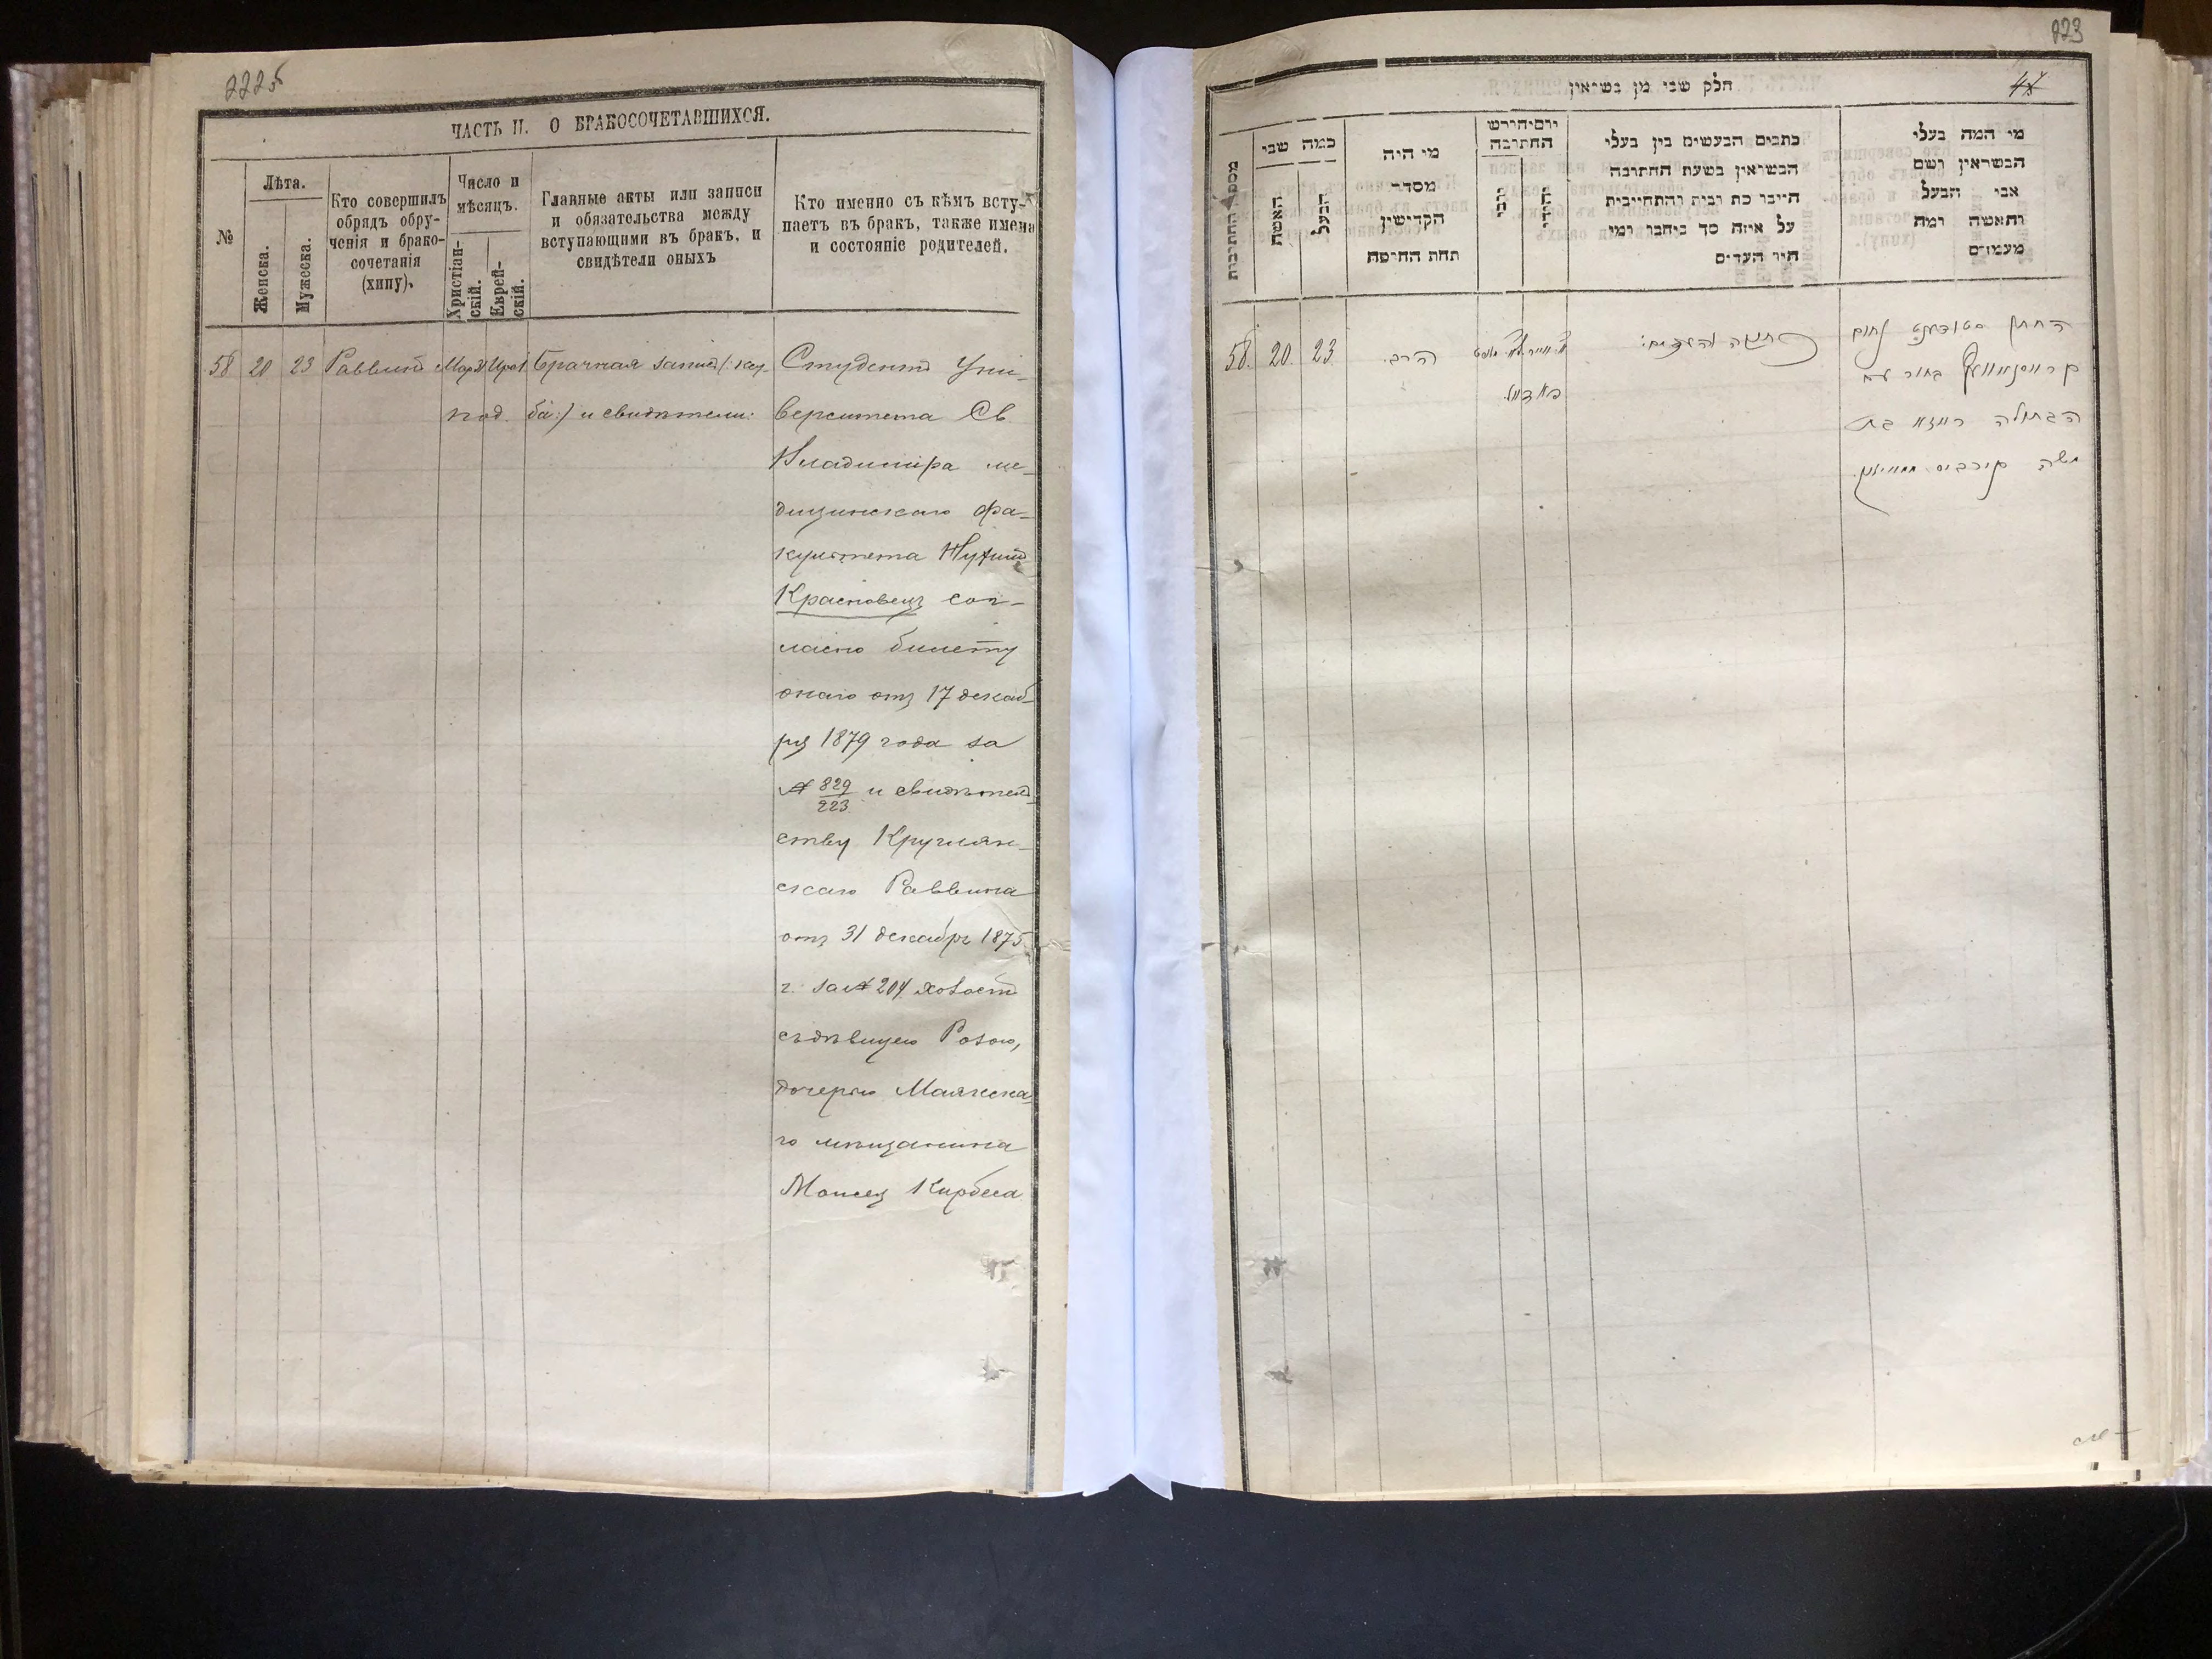 222об
ЧАСТЬ II. О БРАКОСОЧЕТАВШИХСЯ.
№
Лѣта.
Женска.
Мужеска.
Кто совершилъ
обрядъ обру-
ченія и брако-
сочетанія
(хипу).
Число и
мѣсяцъ.
Христіан-
скій.
Еврей-
скій.
Главные акты или записи
и обязательства между
вступающими въ бракъ, и
свидѣтели оныхъ
Кто именно съ кѣмъ всту-
паетъ въ бракъ, также имена
и состояніе родителей.
58 20 23 Раввинъ
Брачная запись (: кту-
ба:) и свидѣтели:
Студентъ Уни-
верситета Св
Владиміра ме-
дицинскаго фа-
культета Нухимъ
Красновецъ сог-
ласно билету
онаго отъ 17 декаб-
ря 1879 года за
№ 829/223 и свидѣтель-
ству Круглян-
скаго Раввина
отъ 31 декабря 1875
г. за № 204 холостъ
съ дѣвицею Розою,
дочерью Маякска-
го мѣщанина
Моисея Кирбеса
223
47
חלק שני מן נשואין
מספר החתונות
כמה שני
האשה
הבעל
מי היה
מסדר
הקדישין
תחת החיפה
כתבים הנעשים בין בעלי
הנשואין בשעת החתונה
היינו כתובות והתחייבות
על איזה סך ביחבו ומי
היו העדים
מי המה בעלי
הנשואין ושם
אבי הבעל
והאשה ומה
מעמדם
58. 20. 23. הרב.
החתן סטודענט נחום
קראסנאוועץ בחור עם
הבתולה רויזא בת
משה קירביס ממאיאק.